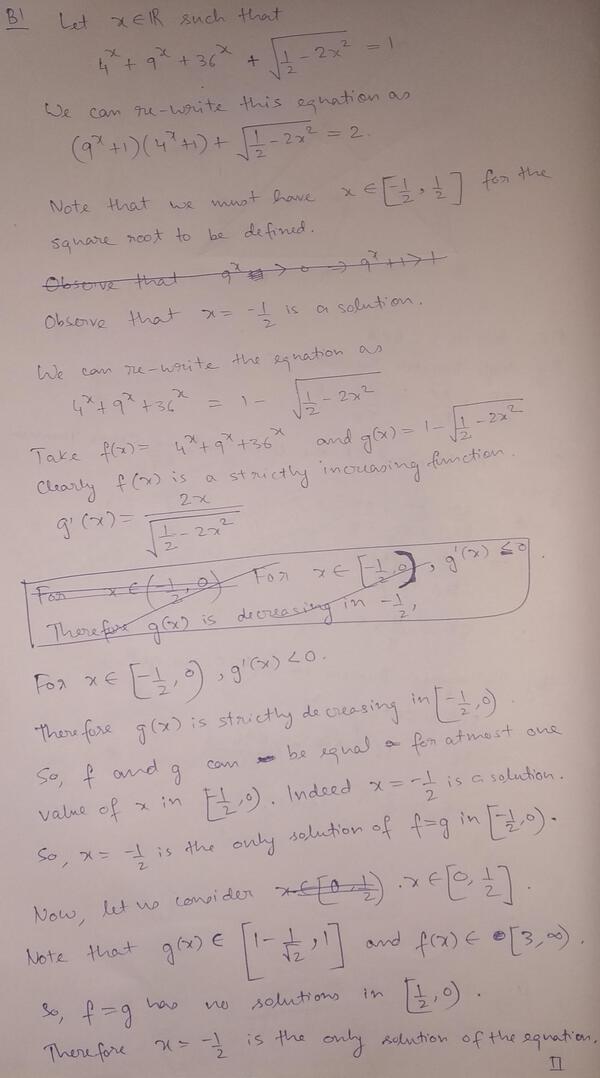 B1 Let x ∈ ℝ such that
4^x + 9^x + 36^x + √(1/2 - 2x^2) = 1
We can re-write this equation as
(9^x + 1)(4^x + 1) + √(1/2 - 2x^2) = 2.
Note that we must have x ∈ [-1/2, 1/2] for the
square root to be defined.
Observe that 9^x > 0 ⇒ 9^x + 1 > 1
Observe that x = -1/2 is a solution.
We can re-write the equation as
4^x + 9^x + 36^x = 1 - √(1/2 - 2x^2)
Take f(x) = 4^x + 9^x + 36^x and g(x) = 1 - √(1/2 - 2x^2)
Clearly f(x) is a strictly increasing function.
g'(x) = 2x / √(1/2 - 2x^2)
For x ∈ (-1/2, 0) For x ∈ [-1/2, 0), g'(x) ≤ 0.
Therefore g(x) is decreasing in -1/2,
For x ∈ [-1/2, 0), g'(x) < 0.
Therefore g(x) is strictly decreasing in [-1/2, 0).
So, f and g can be equal for atmost one
value of x in [-1/2, 0). Indeed x = -1/2 is a solution.
So, x = -1/2 is the only solution of f = g in [-1/2, 0).
Now, let us consider x ∈ [0, 1/2). x ∈ [0, 1/2].
Note that g(x) ∈ [1 - 1/√2, 1] and f(x) ∈ [3, ∞).
So, f = g has no solutions in [1/2, 0).
Therefore x = -1/2 is the only solution of the equation.